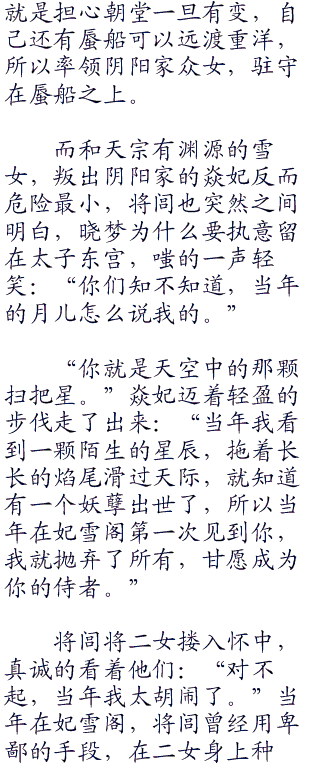 就是担心朝堂一旦有变，自
己还有蜃船可以远渡重洋，
所以率领阴阳家众女，驻守
在蜃船之上。
而和天宗有渊源的雪
女，叛出阴阳家的焱妃反而
危险最小，将闾也突然之间
明白，晓梦为什么要执意留
在太子东宫，嗤的一声轻
笑：“你们知不知道，当年
的月儿怎么说我的。”
“你就是天空中的那颗
扫把星。”焱妃迈着轻盈的
步伐走了出来：“当年我看
到一颗陌生的星辰，拖着长
长的焰尾滑过天际，就知道
有一个妖孽出世了，所以当
年在妃雪阁第一次见到你，
我就抛弃了所有，甘愿成为
你的侍者。”
将闾将二女搂入怀中，
真诚的看着他们：“对不
起，当年我太胡闹了。”当
年在妃雪阁，将闾曾经用卑
鄙的手段，在二女身上种